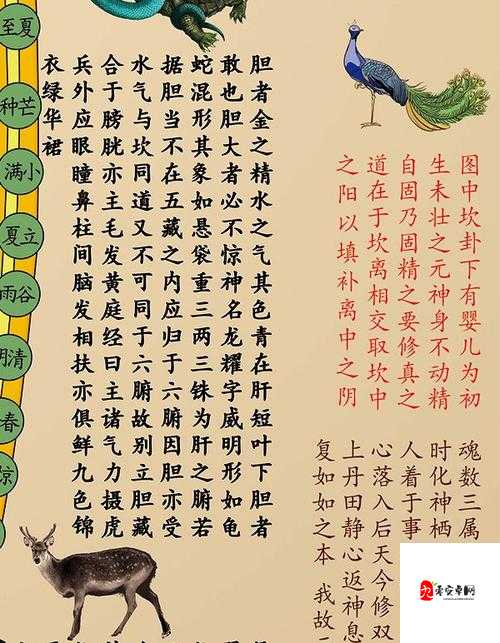 图中坎卦下有婴儿为初
生未壮之元神身不动精
自固乃固精之要修真之
道在于坎离相交取坎中
之阳以填补离中之阴
胆者金之精水之气其色青在肝短叶下胆者
敢也胆大者必不惊神名龙耀字威明形如龟
蛇混形其象如悬袋重三两三铢为肝之腑若
据胆当不在五藏之内应归于六腑因胆亦受
水气与坎同道又不可同于六腑故别立胆藏
合于膀胱亦主毛发黄庭经曰主诸气力摄虎
兵外应眼瞳鼻柱间脑发相扶亦俱鲜九色锦
衣绿华裙
魂数三属
时化神栖
人着于事
心落入后天今修双
上丹田静心返神息
复如如之本 我故
至夏
种芒
满小
夏立
雨谷
明清
春
惊